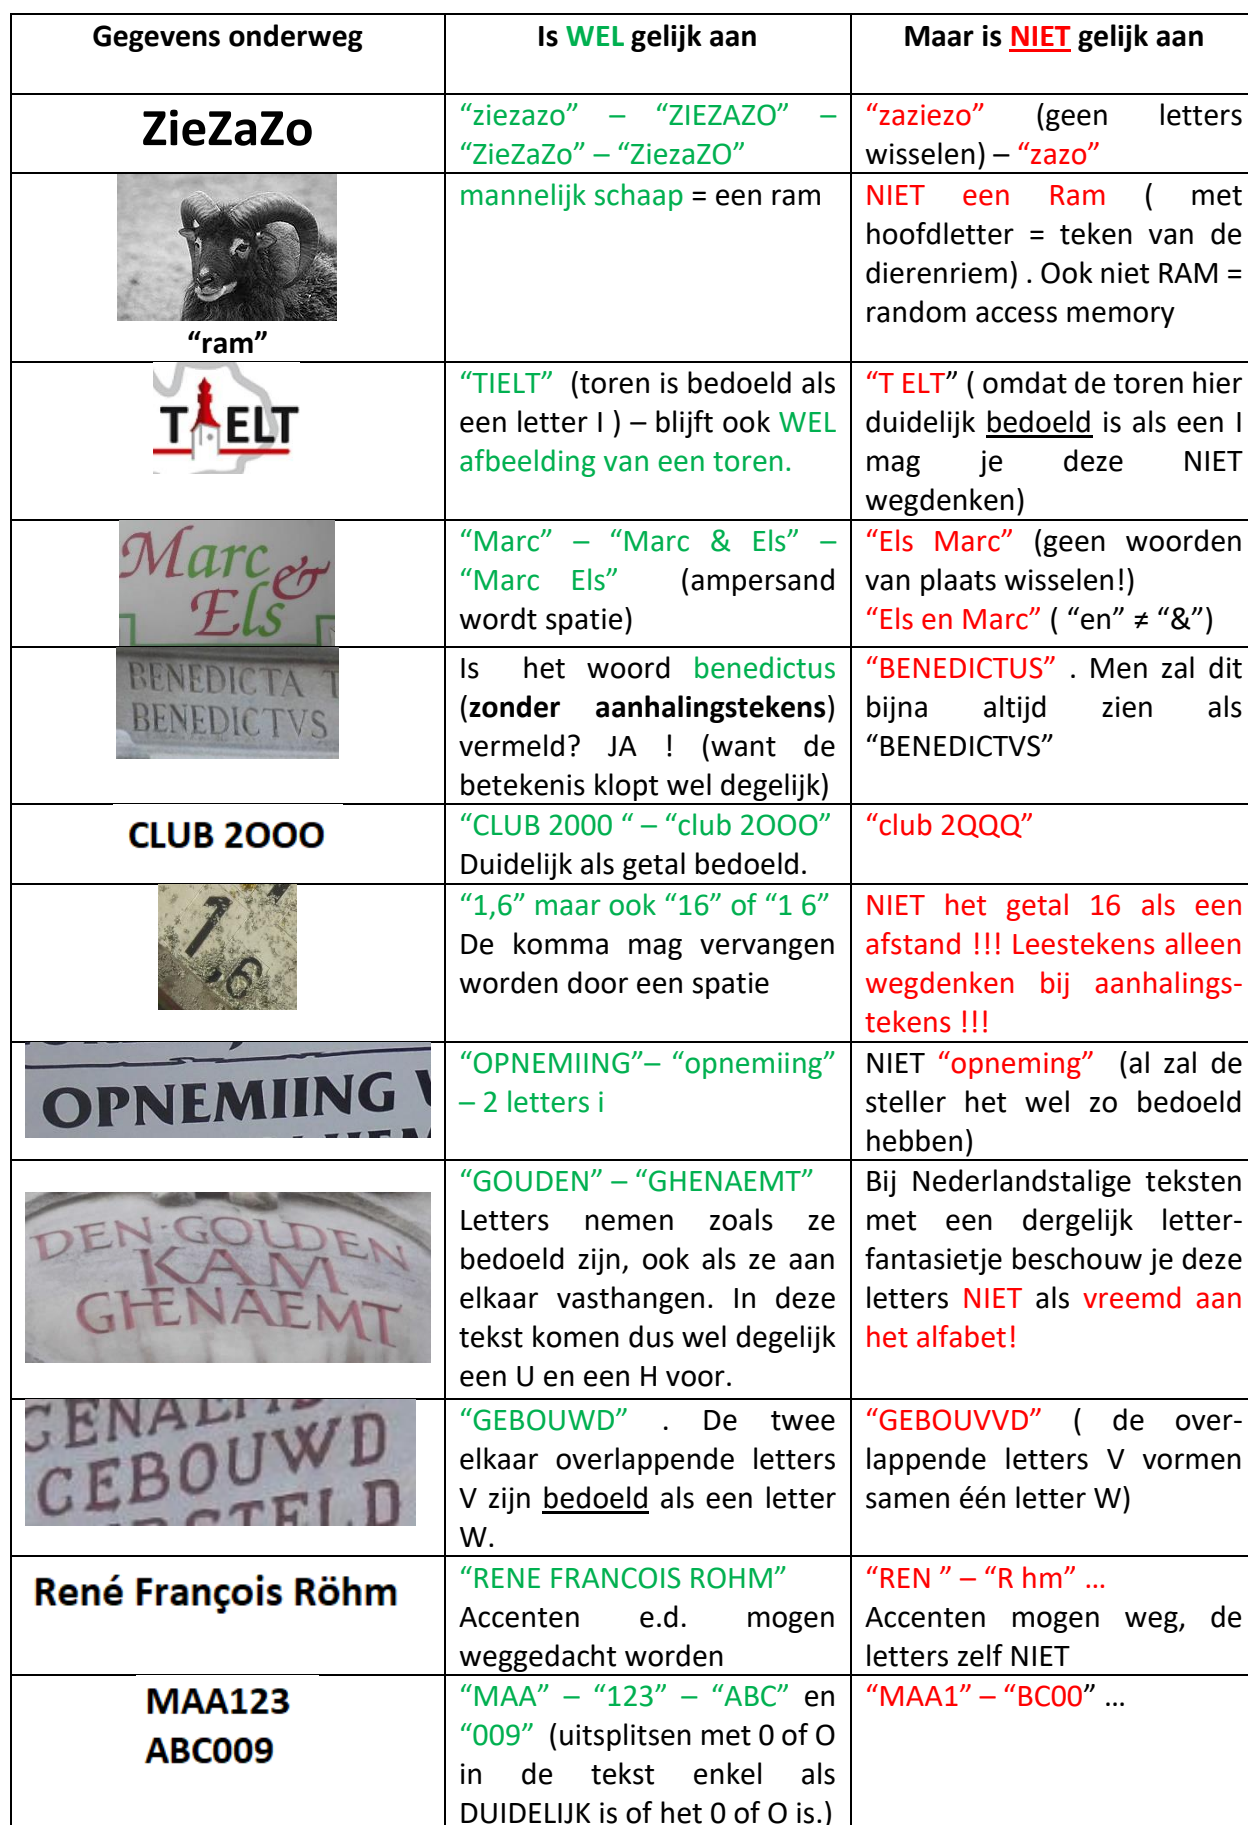 Gegevens onderweg
Is WEL gelijk aan
Maar is NIET gelijk aan
ZieZaZo
“ziezazo” – “ZIEZAZO” –
“ZieZaZo” – “ZiezaZO”
“zaziezo” (geen letters
wisselen) – “zazo”
“ram”
mannelijk schaap = een ram
NIET een Ram ( met
hoofdletter = teken van de
dierenriem) . Ook niet RAM =
random access memory
TIELT
“TIELT” (toren is bedoeld als
een letter I ) – blijft ook WEL
afbeelding van een toren.
“T ELT” ( omdat de toren hier
duidelijk bedoeld is als een I
mag je deze NIET
wegdenken)
Marc &
Els
“Marc” – “Marc & Els” –
“Marc Els” (ampersand
wordt spatie)
“Els Marc” (geen woorden
van plaats wisselen!)
“Els en Marc” ( “en” ≠ “&”)
BENEDICTA T
BENEDICTVS
Is het woord benedictus
(zonder aanhalingstekens)
vermeld? JA ! (want de
betekenis klopt wel degelijk)
“BENEDICTUS” . Men zal dit
bijna altijd zien als
“BENEDICTVS”
CLUB 2OOO
“CLUB 2000 “ – “club 2OOO”
Duidelijk als getal bedoeld.
“club 2QQQ”
1,6
“1,6” maar ook “16” of “1 6”
De komma mag vervangen
worden door een spatie
NIET het getal 16 als een
afstand !!! Leestekens alleen
wegdenken bij aanhalings-
tekens !!!
OPNEMIING
“OPNEMIING”– “opnemiing”
– 2 letters i
NIET “opneming” (al zal de
steller het wel zo bedoeld
hebben)
DEN·GOUDEN
KAM
GHENAEMT
“GOUDEN” – “GHENAEMT”
Letters nemen zoals ze
bedoeld zijn, ook als ze aan
elkaar vasthangen. In deze
tekst komen dus wel degelijk
een U en een H voor.
Bij Nederlandstalige teksten
met een dergelijk letter-
fantasietje beschouw je deze
letters NIET als vreemd aan
het alfabet!
GEBOUWD
“GEBOUWD” . De twee
elkaar overlappende letters
V zijn bedoeld als een letter
W.
“GEBOUVVD” ( de over-
lappende letters V vormen
samen één letter W)
René François Röhm
“RENE FRANCOIS ROHM”
Accenten e.d. mogen
weggedacht worden
“REN ” – “R hm” …
Accenten mogen weg, de
letters zelf NIET
MAA123
ABC009
“MAA” – “123” – “ABC” en
“009” (uitsplitsen met 0 of O
in de tekst enkel als
DUIDELIJK is of het 0 of O is.)
“MAA1” – “BC00” …